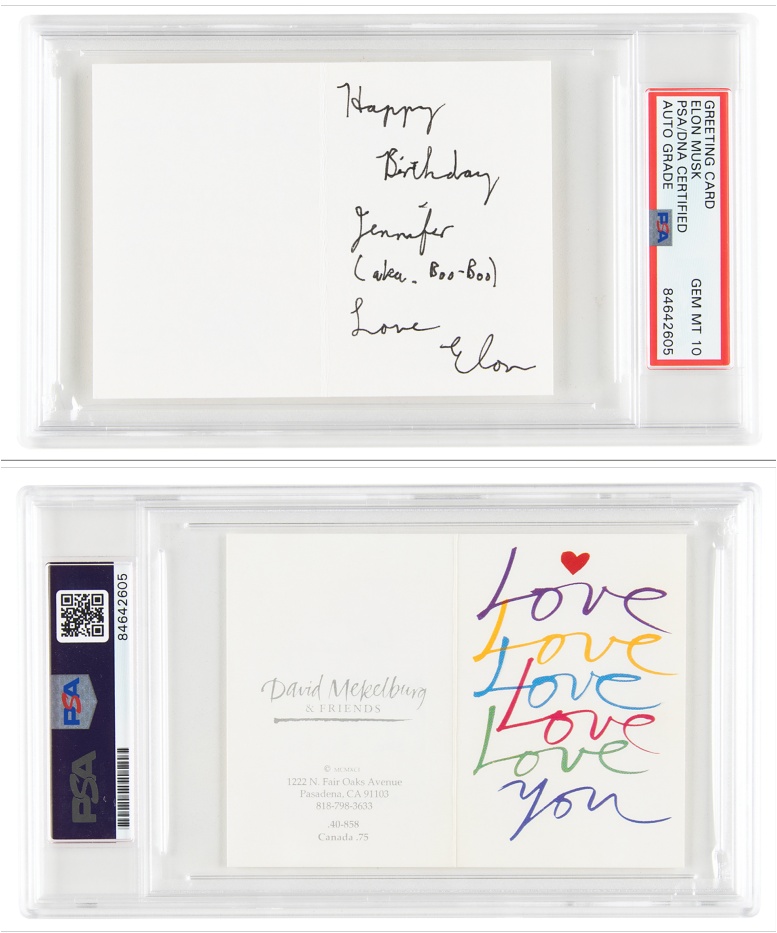 Happy
Birthday
Jennifer
(aka. Boo-Boo)
Love
Elon
GREETING CARD
ELON MUSK
PSA/DNA CERTIFIED
AUTO GRADE
GEM MT 10
84642605
PSA
84642605
PSA
PSA
David Mekelburg
& FRIENDS
©
1222 N. Fair Oaks Avenue
Pasadena, CA 91103
818-798-3633
.40-858
Canada .75
Love
Love
Love
Love
Love
You